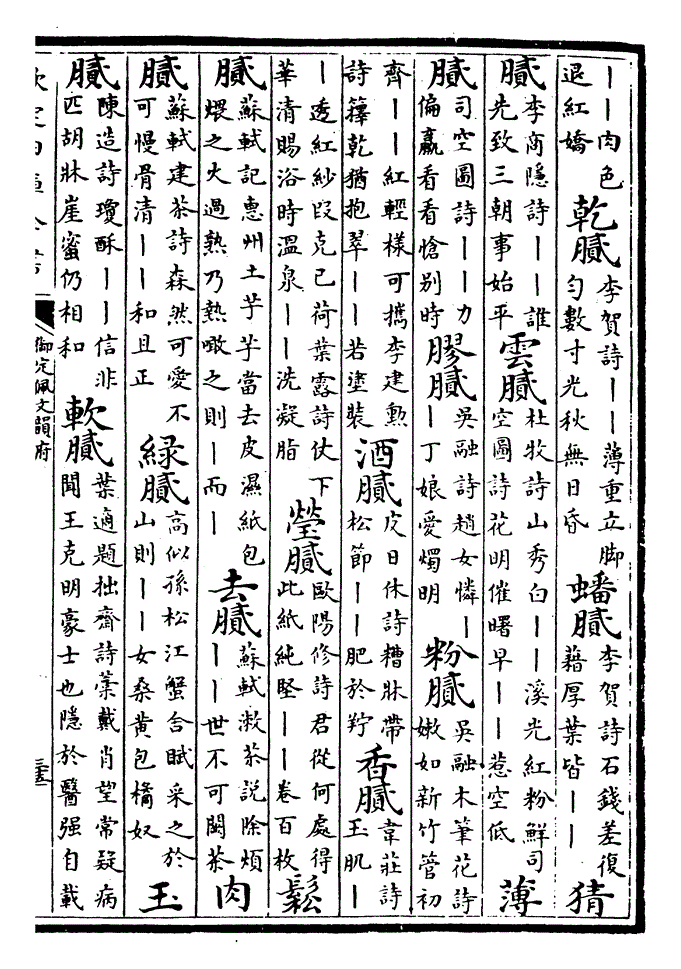 丨丨肉色
退紅嬌
乾膩
李賀詩丨丨薄重立脚
勻數寸光秋無日昏
蟠膩
李賀詩石錢差復
藉厚葉皆丨丨
猜
膩
李商隱詩丨丨丨誰
先致三朝事始平
雲膩
杜牧詩山秀白丨丨溪光紅粉鮮司
空圖詩花明催曙早丨丨惹空低
薄
膩
司空圖詩丨丨力
偏羸看看愴别時
膠膩
吳融詩趙女憐丨
丨丁娘愛燭明
粉膩
吳融木筆花詩
嫩如新竹管初
齊丨丨紅輕樣可攜李建勲
詩籜乾猶抱翠丨丨若塗裝
酒膩
皮日休詩糟牀帶
松節丨丨肥於羜
香膩
韋莊詩
玉肌丨
丨透紅紗叚克己荷葉露詩仗下
華清賜浴時溫泉丨丨洗凝脂
瑩膩
歐陽修詩君從何處得
此紙純堅丨丨卷百枚
鬆
膩
蘇軾記惠州土芋芋當去皮濕紙包
煨之火過熟乃熱噉之則丨而丨
去膩
蘇軾漱茶説除煩
丨丨世不可闕茶
肉
膩
蘇軾建茶詩森然可愛不
可慢骨清丨丨和且正
緑膩
高似孫松江蟹舍賦采之於
山則丨丨女桑黄包橘奴
玉
膩
陳造詩瓊酥丨丨信非
匹胡牀崖蜜仍相和
軟膩
葉適題拙齋詩藁戴肖望常疑病
聞王克明豪士也隱於醫强自載
欽定四庫全書
御定佩文韻府